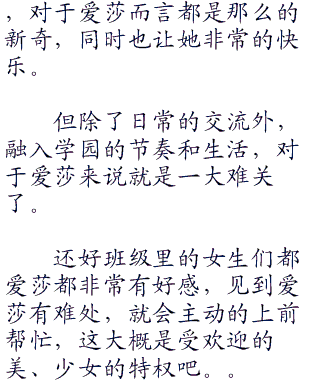 ，对于爱莎而言都是那么的
新奇，同时也让她非常的快
乐。
但除了日常的交流外，
融入学园的节奏和生活，对
于爱莎来说就是一大难关
了。
还好班级里的女生们都
爱莎都非常有好感，见到爱
莎有难处，就会主动的上前
帮忙，这大概是受欢迎的
美、少女的特权吧。。